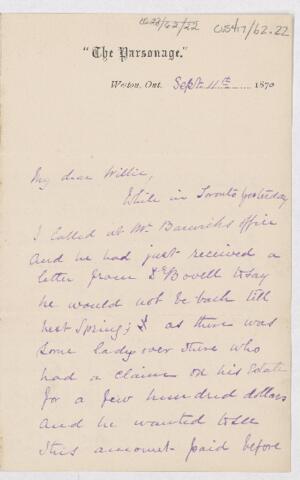 CUS417/62.22
"The Parsonage."
Weston, Ont. Sept. 11th 1870
My dear Willie,
While in Toronto yesterday
I called at Mr Barwicks office
And he had just received a
letter from Dr Bovell to say
he would not be back till
next Spring; & as there was
some lady over there who
had a claim on his Estate
for a few hundred dollars
And he wanted to see
this amount paid before